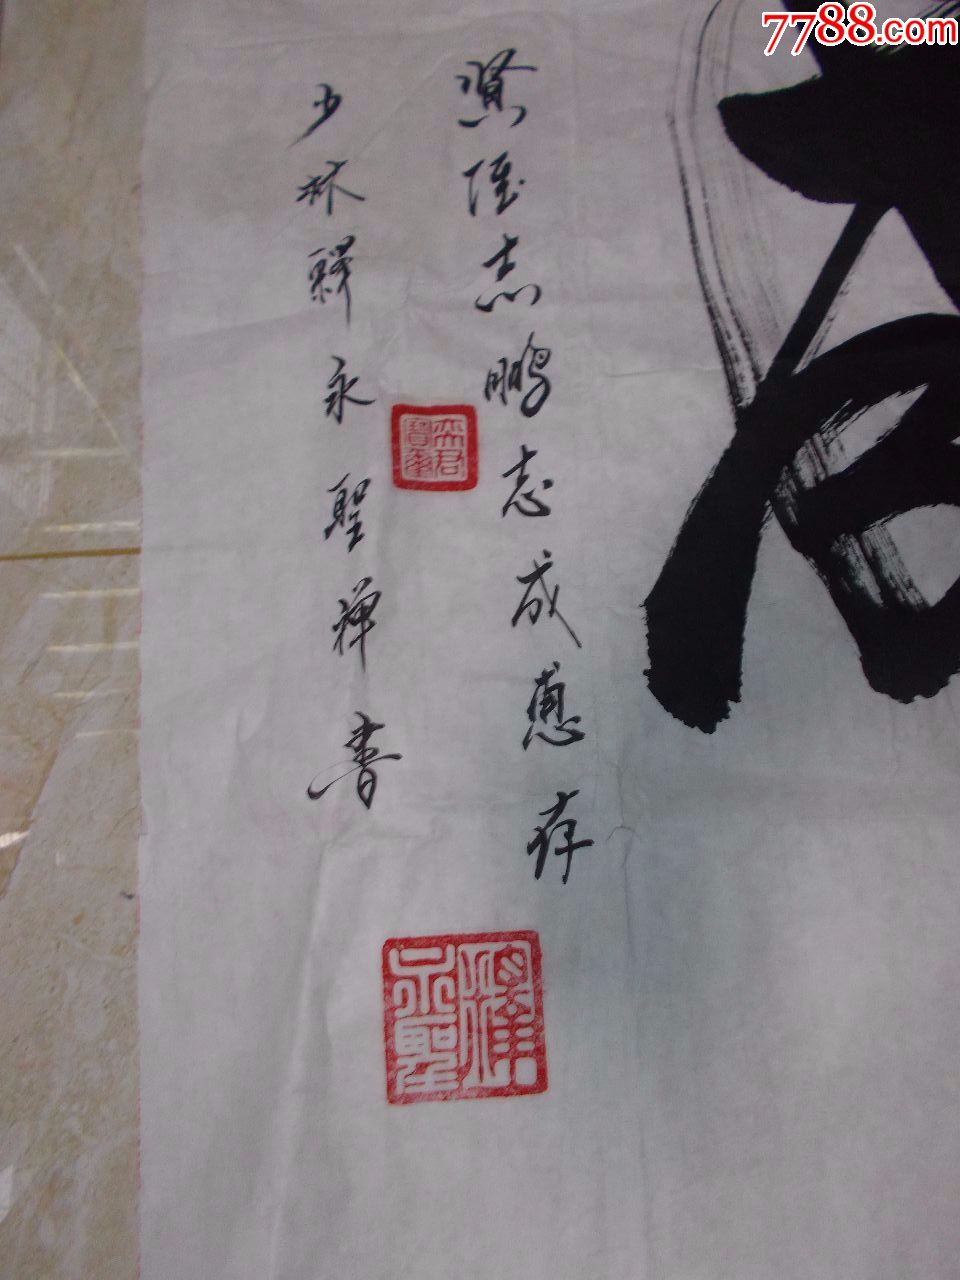 7788.com
贤陸志鹏志成惠存
少林釋永聖禅書
永聖